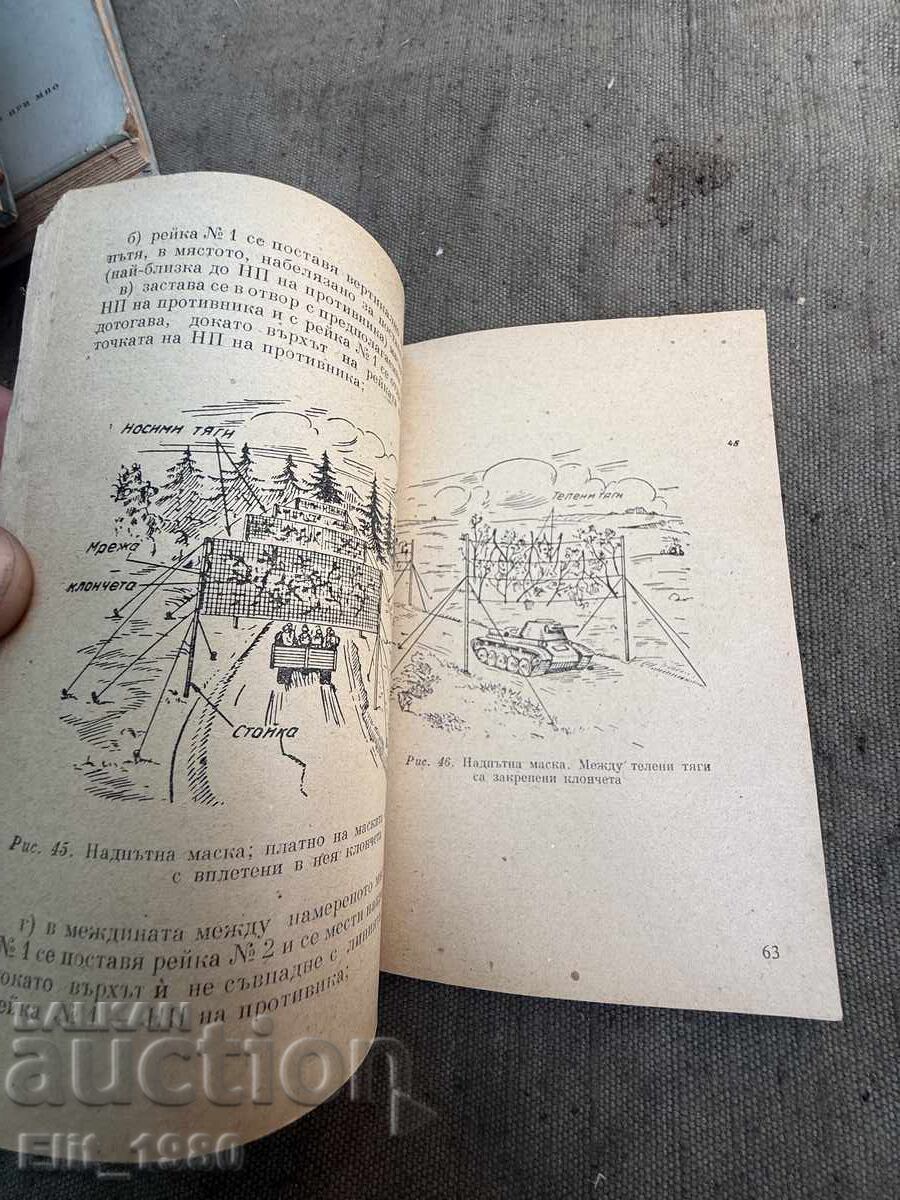 при мпо
б) рейка № 1 се поставя
пътя, в мястото, набелязано за
(най-близка до НП на противника)
в) застава се в отвор с
НП на противника и с рейка № 1 се
дотогава, докато върхът на
точката на НП на противника;
Носими тяги
Мрежа
клончета
Стойка
Рис. 45. Надпътна маска; платно на маската
с вплетени в нея клончета
г) в междината между намереното
№ 1 се поставя рейка № 2 и се мести
върхът ѝ не съвпадне с
№ 1 НП на противика;
45
Телени тяги
Рис. 46. Надпътна маска. Между телени тяги
са закрепени клончета
63
БАЛКАН
auction
Elit_1980